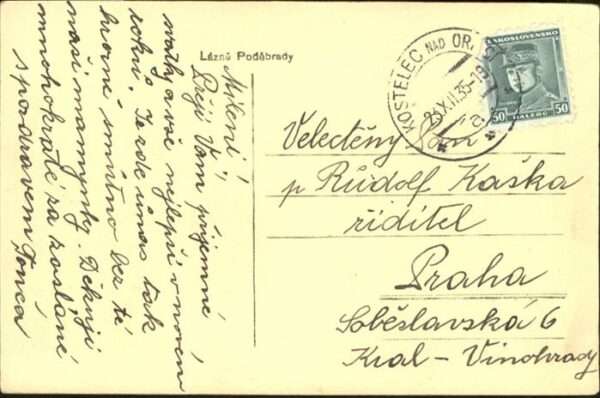 Lázně Poděbrady
Milení,
Přeji Vám příjemné
svátky a vše nejlepší v novém
roku. Je zde u nás tak
hrozně smutno bez té
naší maminky. Děkuji
mnohokráte za zaslané
s pozdravem Tonča
KOSTELEC NAD ORLICÍ
23.XII.35
ČESKOSLOVENSKO
50 HALÉŘŮ 50
Velectěný Pán
p Rudolf Kaška
řiditel
Praha
Soběslavská 6
Král - Vinohrady